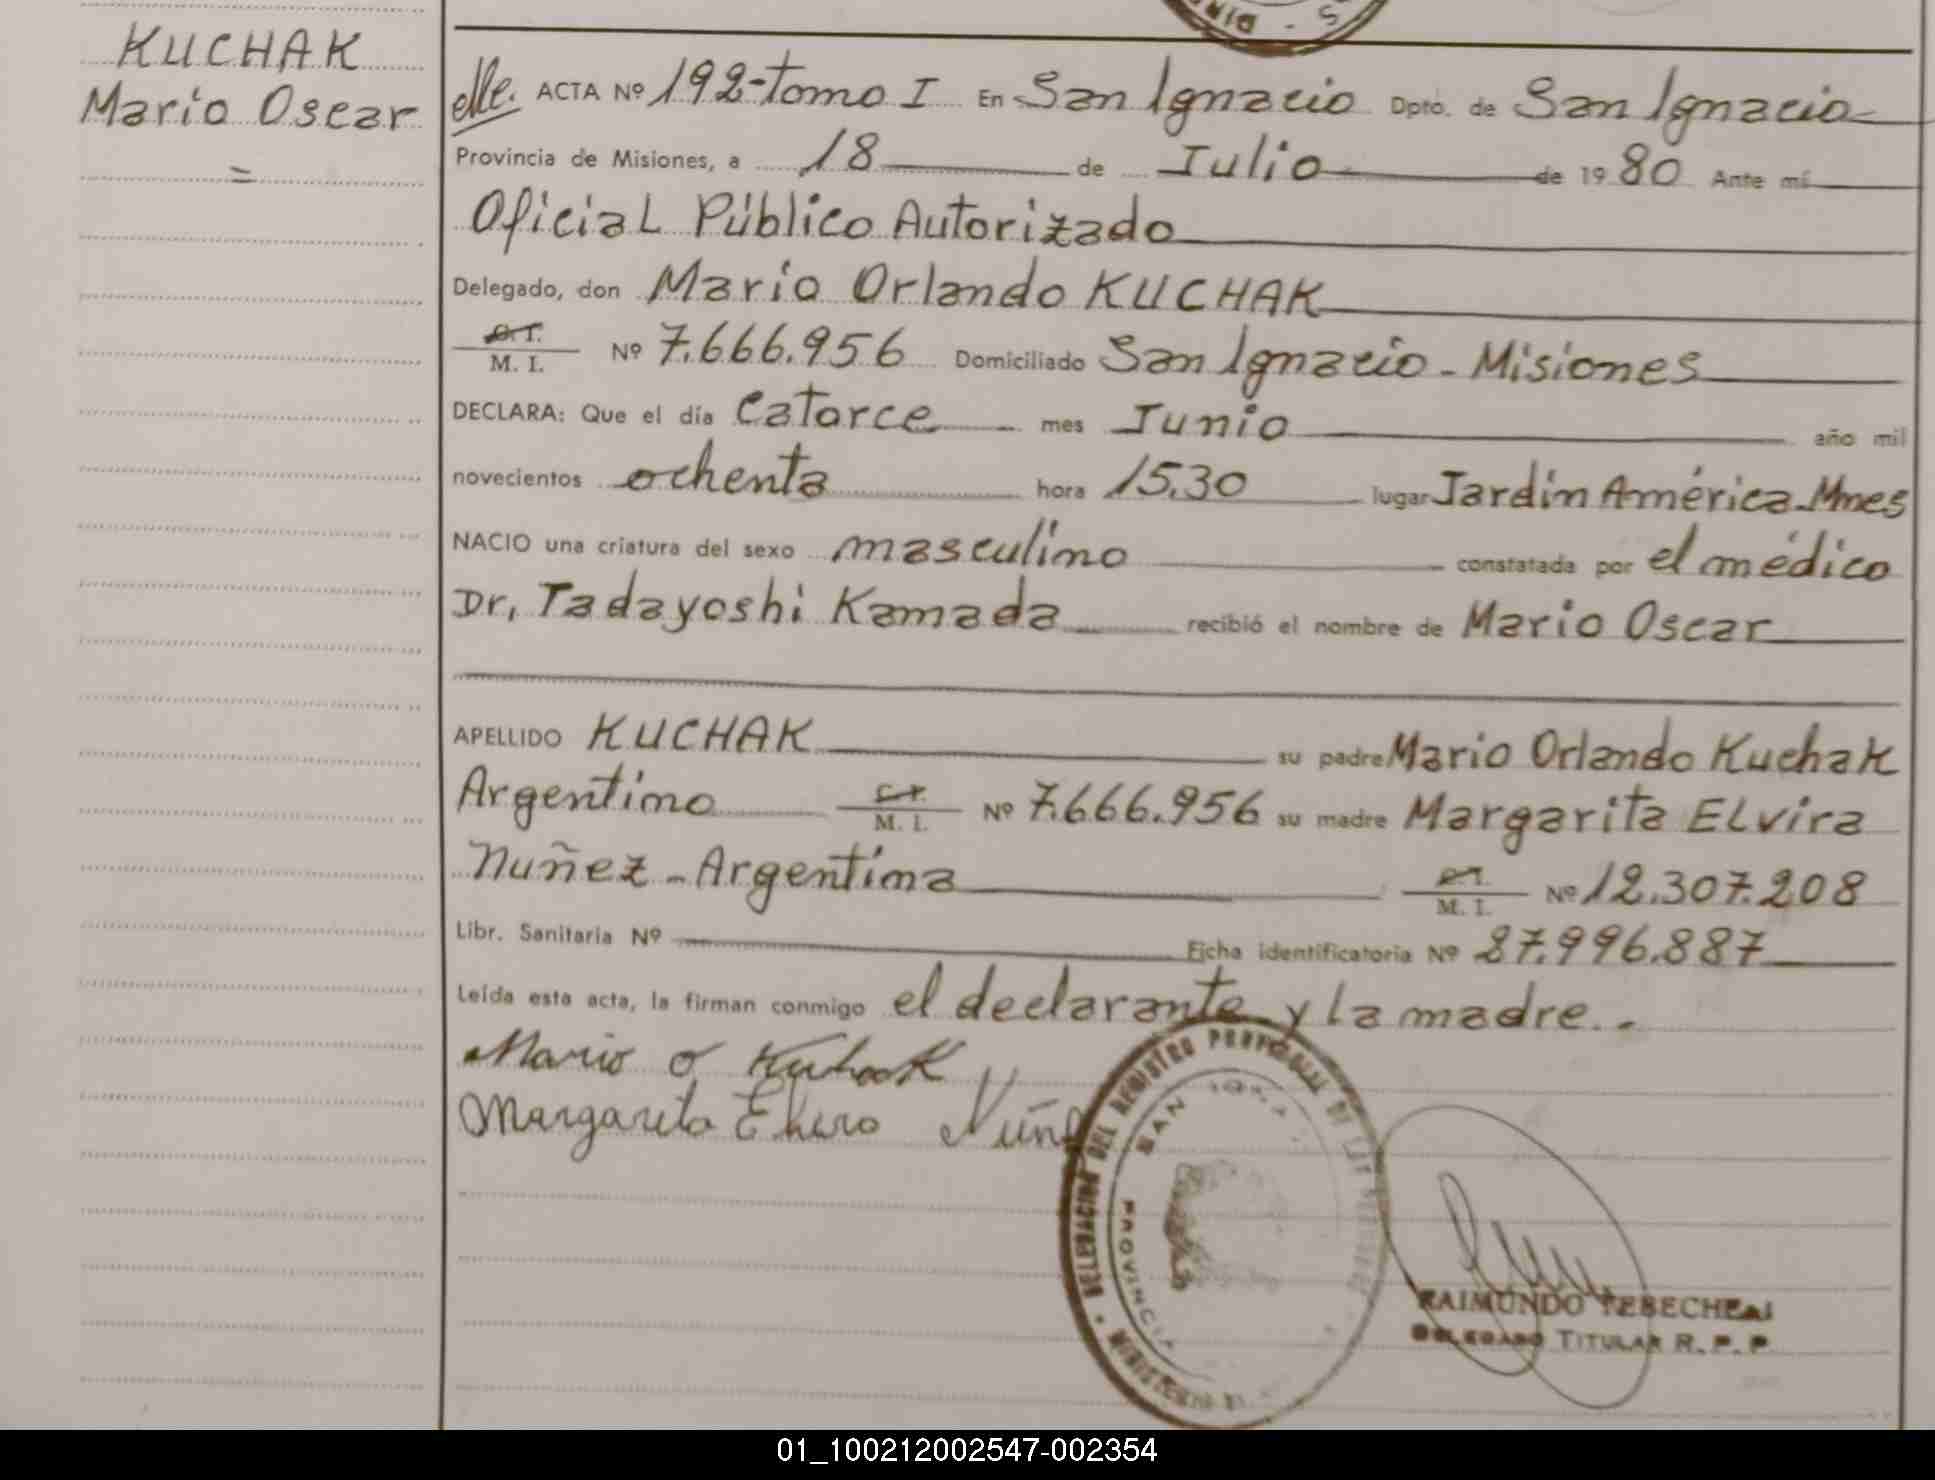 KUCHAK
Mario Oscar
=
ACTA Nº 192-tomo I En San Ignacio Dpto. de San Ignacio
Provincia de Misiones, a 18 de Julio de 1980 Ante mí
Oficial Público Autorizado
Delegado, don Mario Orlando KUCHAK
M. I. Nº 7.666.956 Domiciliado San Ignacio - Misiones
DECLARA: Que el día Catorce mes Junio año mil
novecientos ochenta hora 15,30 lugar Jardín América-Mnes
NACIO una criatura del sexo masculino constatada por el médico
Dr, Tadayoshi Kamada recibió el nombre de Mario Oscar
APELLIDO KUCHAK su padre Mario Orlando Kuchak
Argentino M. I. Nº 7.666.956 su madre Margarita Elvira
Nuñez - Argentina M. I. Nº 12.307.208
Libr. Sanitaria Nº Ficha identificatoria Nº 27.996.887
Leída esta acta, la firman conmigo el declarante y la madre. -
Mario O Kuchak
Margarita Nuñ
DELEGACION DEL REGISTRO PROVINCIAL DE LAS PERSONAS
SAN
PROVINCIA
RAIMUNDO
DELEGADO TITULAR R. P. P
01_100212002547-002354